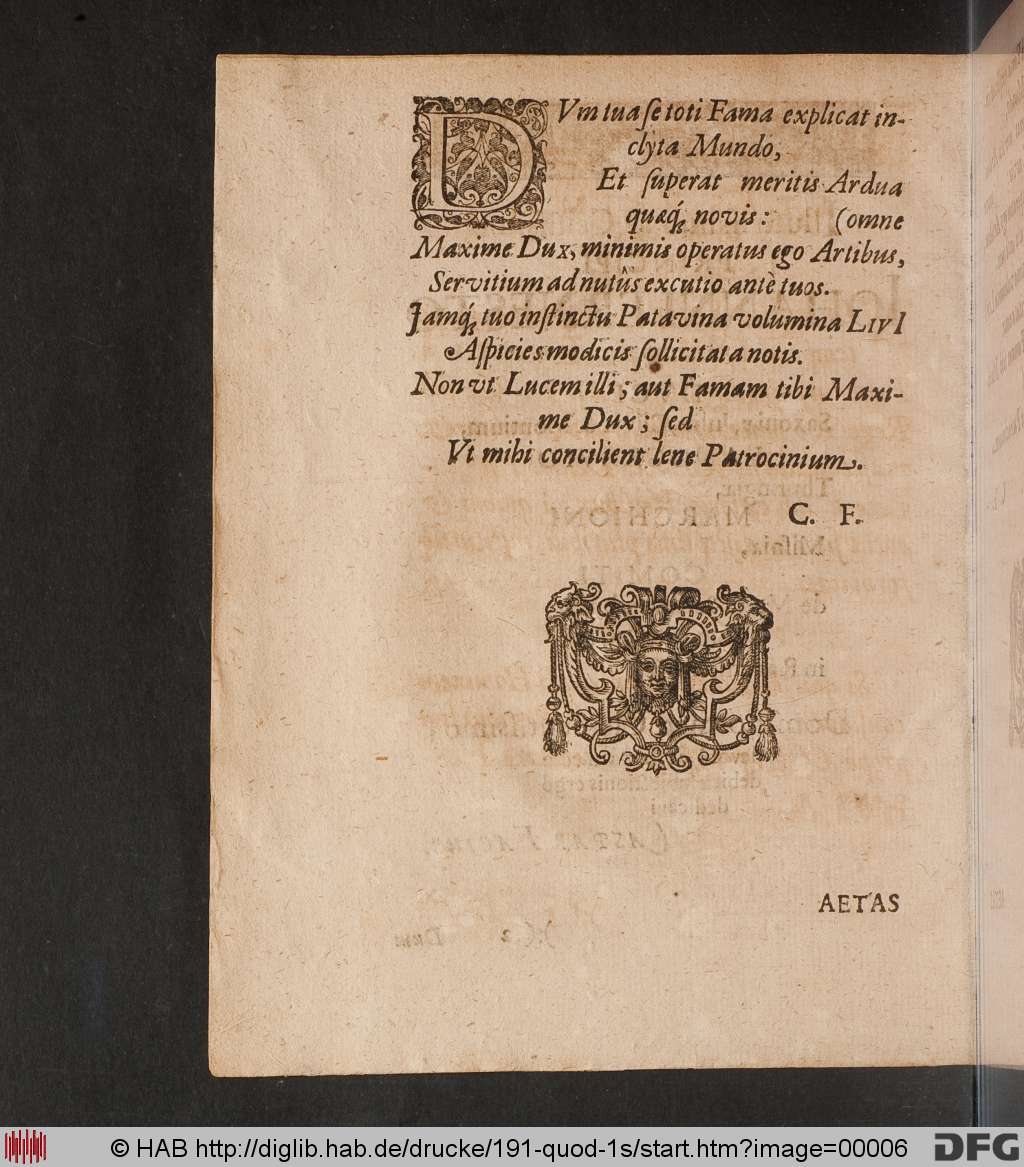 DUm tua se toti Fama explicat in-
clyta Mundo,
Et superat meritis Ardua
quæq́; novis: (omne
Maxime Dux, minimis operatus ego Artibus,
Servitium ad nutûs excutio antè tuos.
Jamq́; tuo instinctu Patavina volumina LIVI
Aspicies modicis sollicitata notis.
Non ut Lucem illi; aut Famam tibi Maxi-
me Dux; sed
Vt mihi concilient lene Patrocinium.
C. F.
AETAS
© HAB http://diglib.hab.de/drucke/191-quod-1s/start.htm?image=00006
DFG